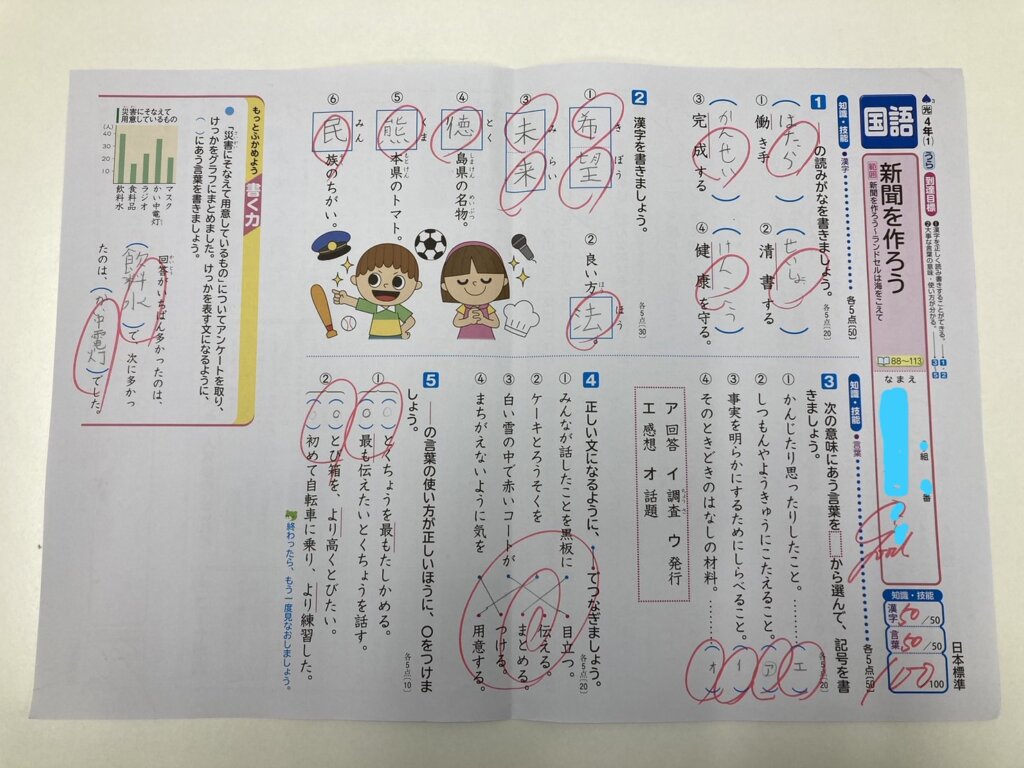 光 4年(1) うら
国語
到達目標
①漢字を正しく読み書きすることができる。 1・2
②大事な言葉の意味・使い方が分かる。 3〜5
新聞を作ろう
範囲 新聞を作ろう〜ランドセルは海をこえて
88〜113
なまえ
組
番
Good
知識・技能
漢字 50/50
言葉 50/50
100/100
日本標準
知識・技能 ●漢字 各5点(50)
1 の読みがなを書きましょう。 各5点(20)
① 働き手 (はたら)
② 清書する (せいしょ)
③ 完成する (かんせい)
④ 健康を守る。 (けんこう)
2 漢字を書きましょう。 各5点(30)
① 希望 きぼう
② 良い方法。 ほうほう
③ 未来 みらい
④ 徳島県の名物。 とくしまけん めいぶつ
⑤ 熊本県のトマト。 くまもとけん
⑥ 民族のちがい。 みんぞく
知識・技能 ●言葉 各5点(50)
3 次の意味にあう言葉を から選んで、記号を書きましょう。 各5点(20)
① かんじたり思ったりしたこと。 (エ)
② しつもんやようきゅうにこたえること。 (ア)
③ 事実を明らかにするためにしらべること。 (イ)
④ そのときどきのはなしの材料。 (オ)
ア 回答 イ 調査 ウ 発行
エ 感想 オ 話題
4 正しい文になるように、・—・でつなぎましょう。 各5点(20)
① みんなが話したことを黒板に
② ケーキとろうそくを
③ 白い雪の中で赤いコートが
④ まちがえないように気を
目立つ。
伝える。
まとめる。
つける。
用意する。
5 ——の言葉の使い方が正しいほうに、○をつけましょう。 各5点(10)
① ( )とくちょうを最もたしかめる。
(○)最も伝えたいとくちょうを話す。
② (○)とび箱を、より高くとびたい。
( )初めて自転車に乗り、より練習した。
終わったら、もう一度見なおしましょう。
もっとふかめよう 書く力
●「災害にそなえて用意しているもの」についてアンケートを取り、
けっかをグラフにまとめました。けっかを表す文になるように、
( )にあう言葉を書きましょう。
災害にそなえて
用意しているもの
(人)
40
30
20
10
飲料水
食料品
ラジオ
かい中電灯
マスク
回答がいちばん多かったのは、
(飲料水)で 次に多かっ
たのは、(かい中電灯)でした。